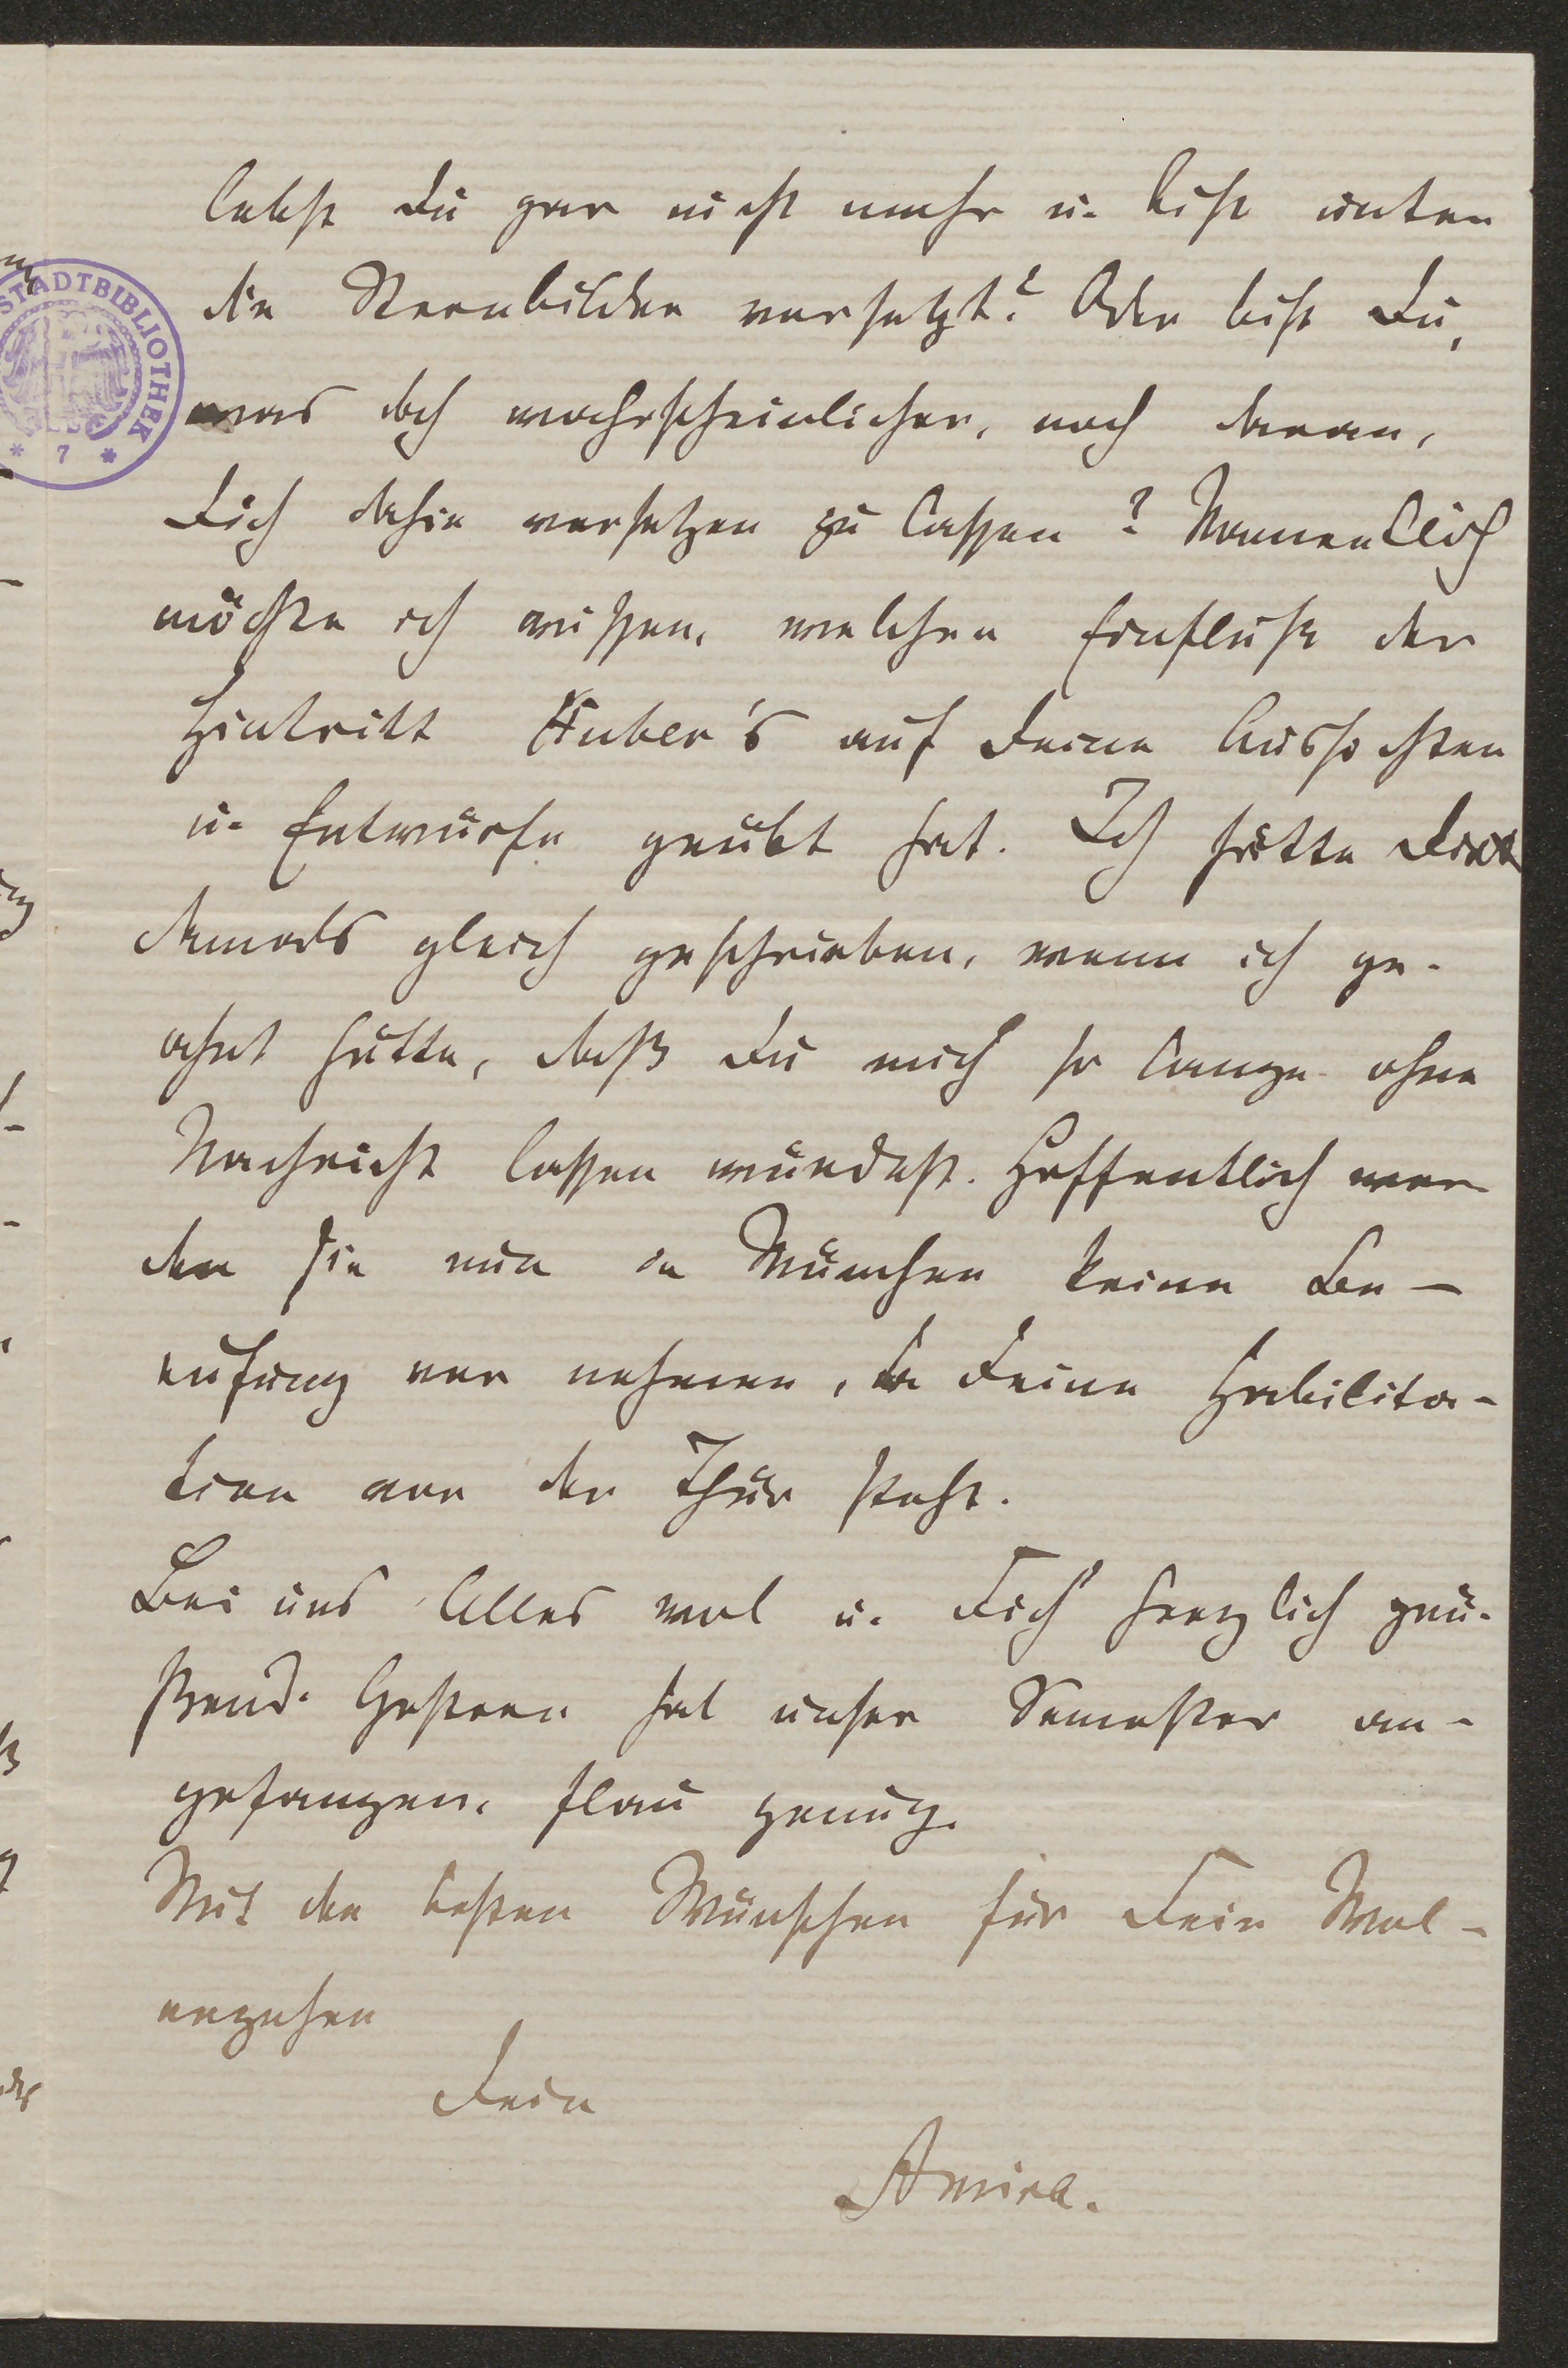 lebst Du gar nicht mehr u. bist unter
die Sternbilder versetzt? Oder bist Du,
was doch wahrscheinlicher, noch daran,
Dich dahin versetzen zu lassen? Namentlich
möchte ich wissen, welchen Einfluß der
Hintritt Huber's auf Deine Aussichten
u. Entwürfe geübt hat. Ich hätte Dir
damals gleich geschrieben, wenn ich ge-
ahnt hätte, daß Du mich so lange ohne
Nachricht lassen würdest. Hoffentlich wer
den sie nun in München keine Be-
rufung vor nehmen, da Deine Habilita-
tion vor der Thür steht.
Bei uns Alles wol u. Dich herzlich grü-
ßend. Gestern hat unser Semester an-
gefangen, flau genug.
Mit den besten Wünschen für Dein Wol-
ergehen
Dein
Amira.
STADTBIBLIOTHEK
* 7 *